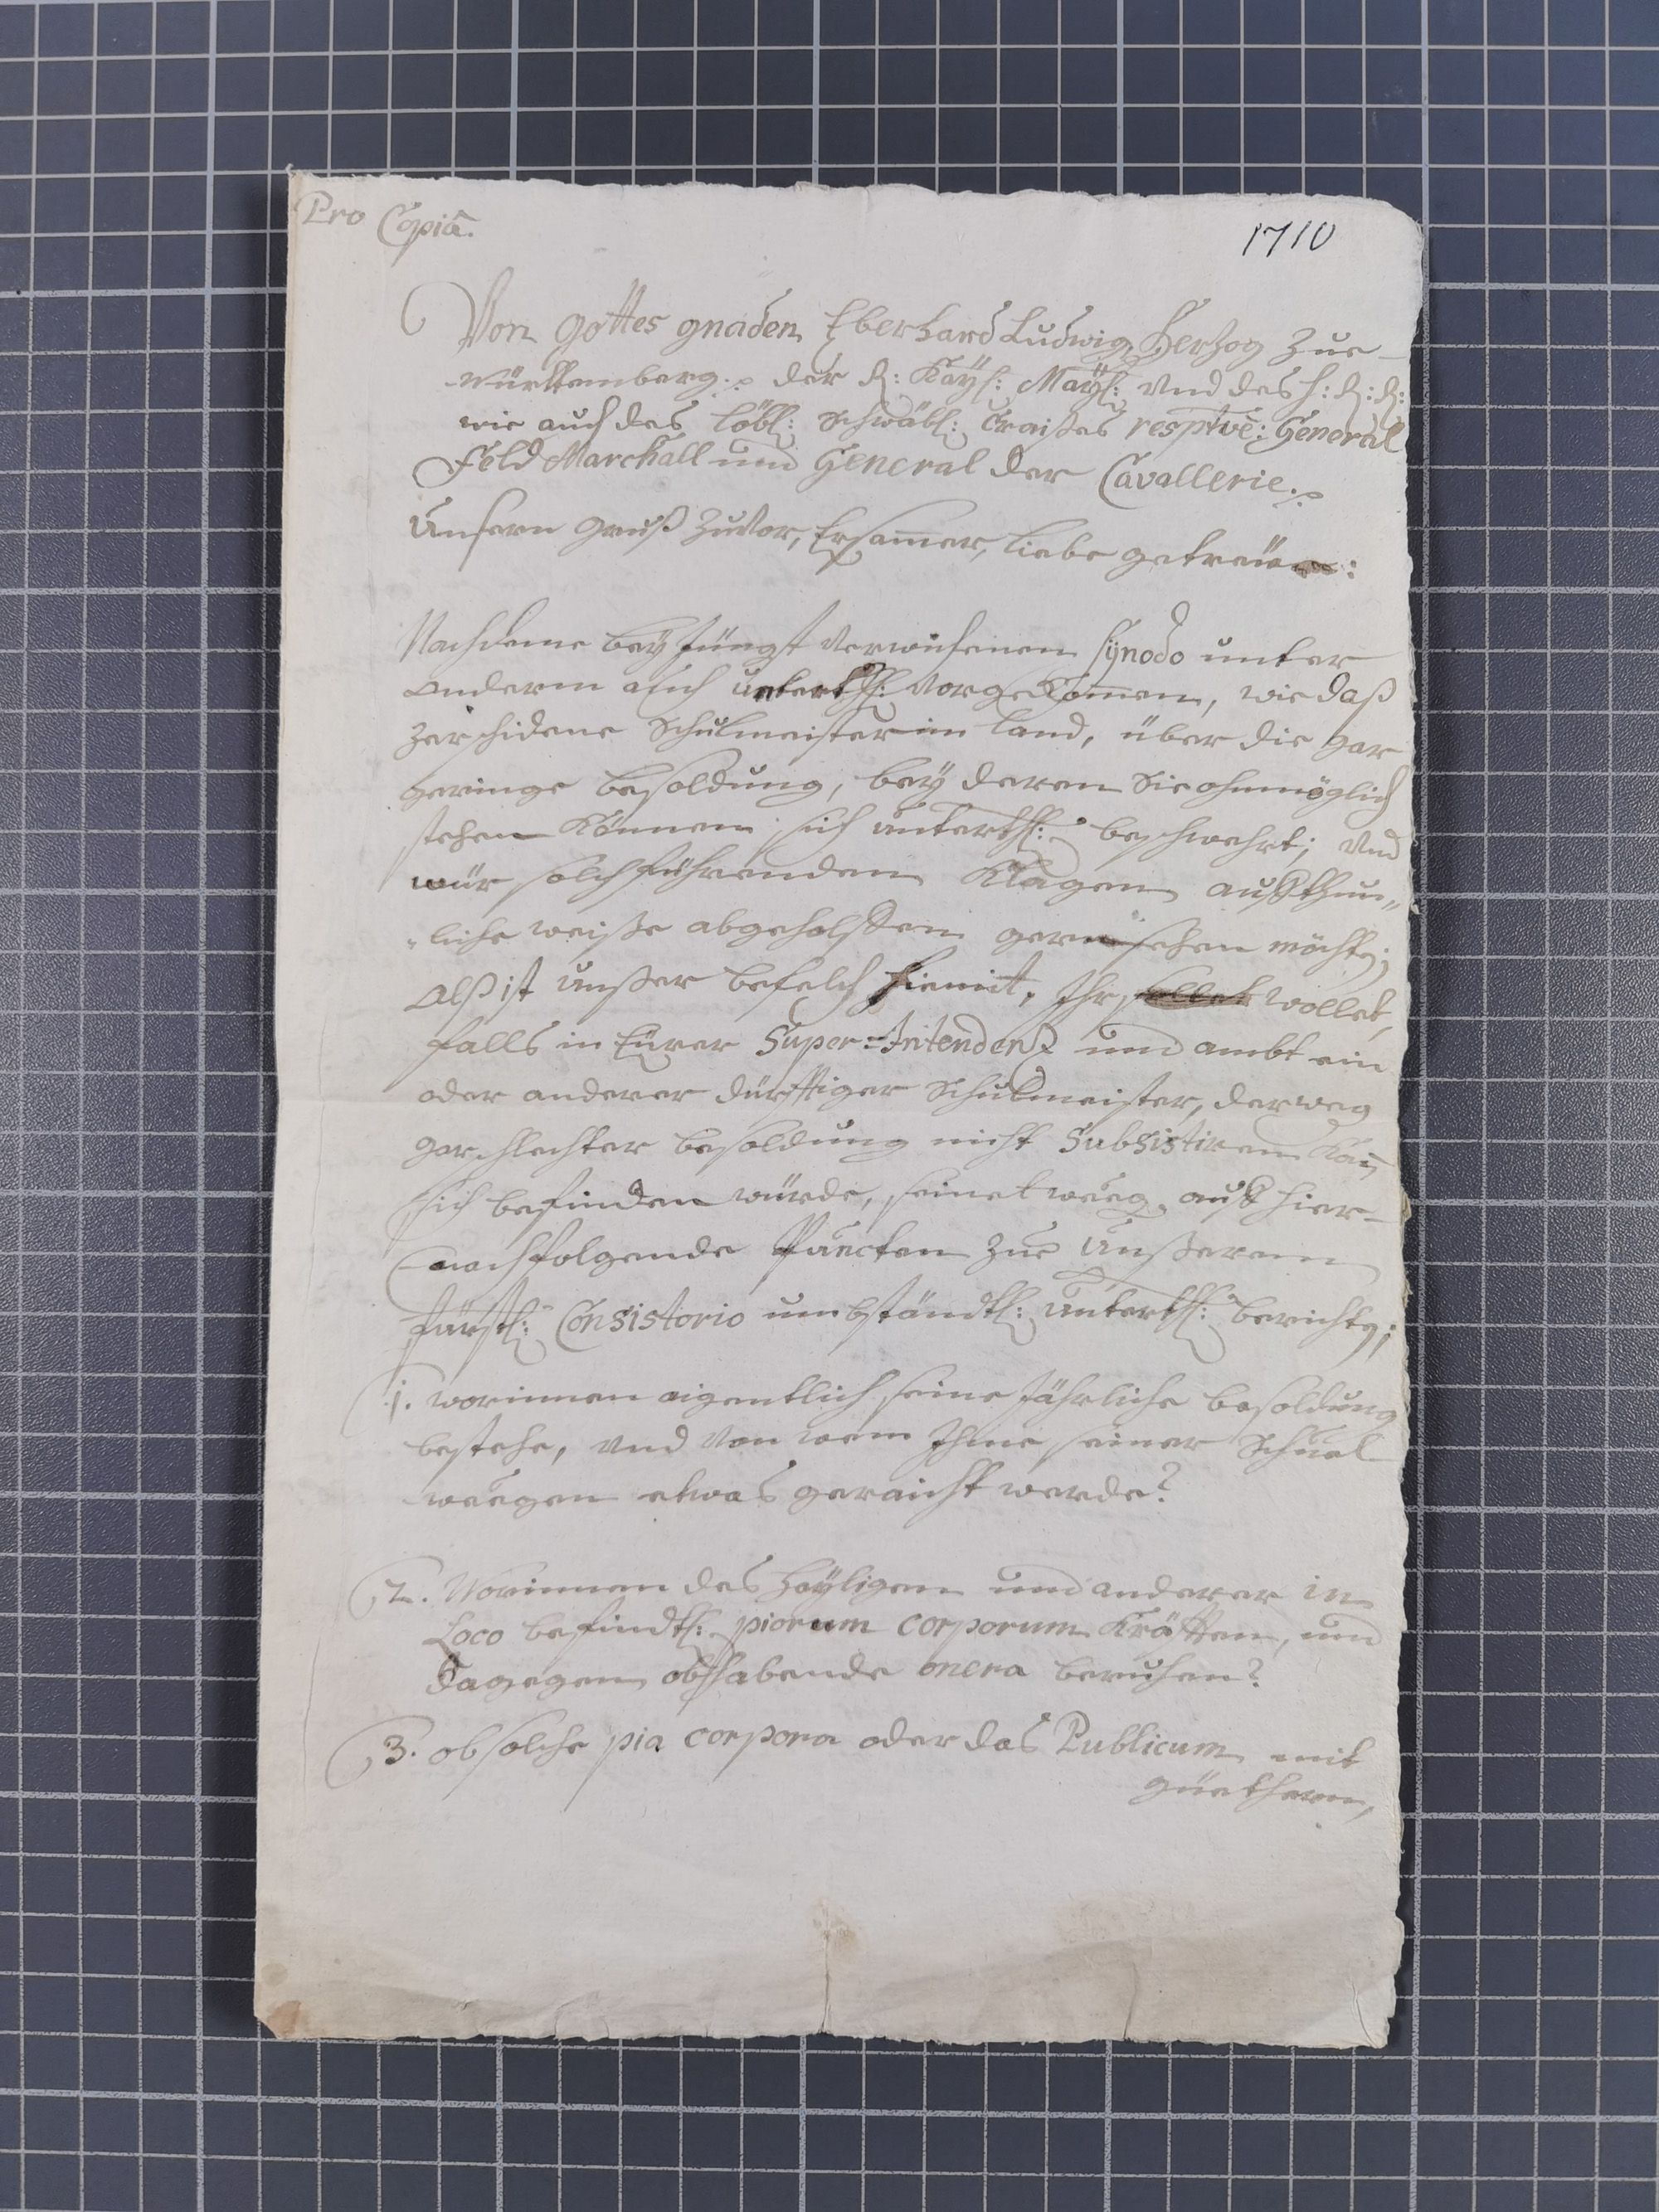 Pro Copiâ.
1710
Von Gottes gnaden Eberhard Ludwig Herzog Zue
Württemberg. der R: Kayß: Mayß: und des H: R: R:
wie auch des löbl: Schwäbl: Craißes resptvè: General
Feld Marchall und General der Cavallerie.
Unsern gruß Zuvor, Ersamer, liebe getreüe:
Nachdeme bey Jüngst verwichenen Synodo unter
anderm auch unterth: vorgekom̄en, wie daß
Zerschidene Schulmeister im land, über die gar
geringe besoldung, bey deren Sie ohnmöglich
stehen können sich unterth: beschwehrt; und
wür solch führenden Klagen auff thun„
„liche weiße abgeholffen gern sehen möchten;
Alß ist Unßer befelch hiemit, Ihr wollet,
falls in Eürer Super=Intendenz und ambt ein
oder anderer dürfftiger Schulmeister, der weg.
gar schlechter besoldung nicht Subsistiren kan̄
sich befinden würde, seinetweeg. auff hier-
nachfolgende Puncten zue Unßerem
fürstl: Consistorio umbständtl: unterth: berichten;
1. worinnen eigentlich seine Jährliche besoldung
bestehe, und von wem Ihme seiner Schuel
weegen etwas gereicht werde?
2. Worinnen des Heyligen und anderer in
Loco befindtl: piorum corporum Kräfften, und
dagegen obhabende onera beruhen?
3. ob solche pia corpora oder das Publicum mit
güethern,